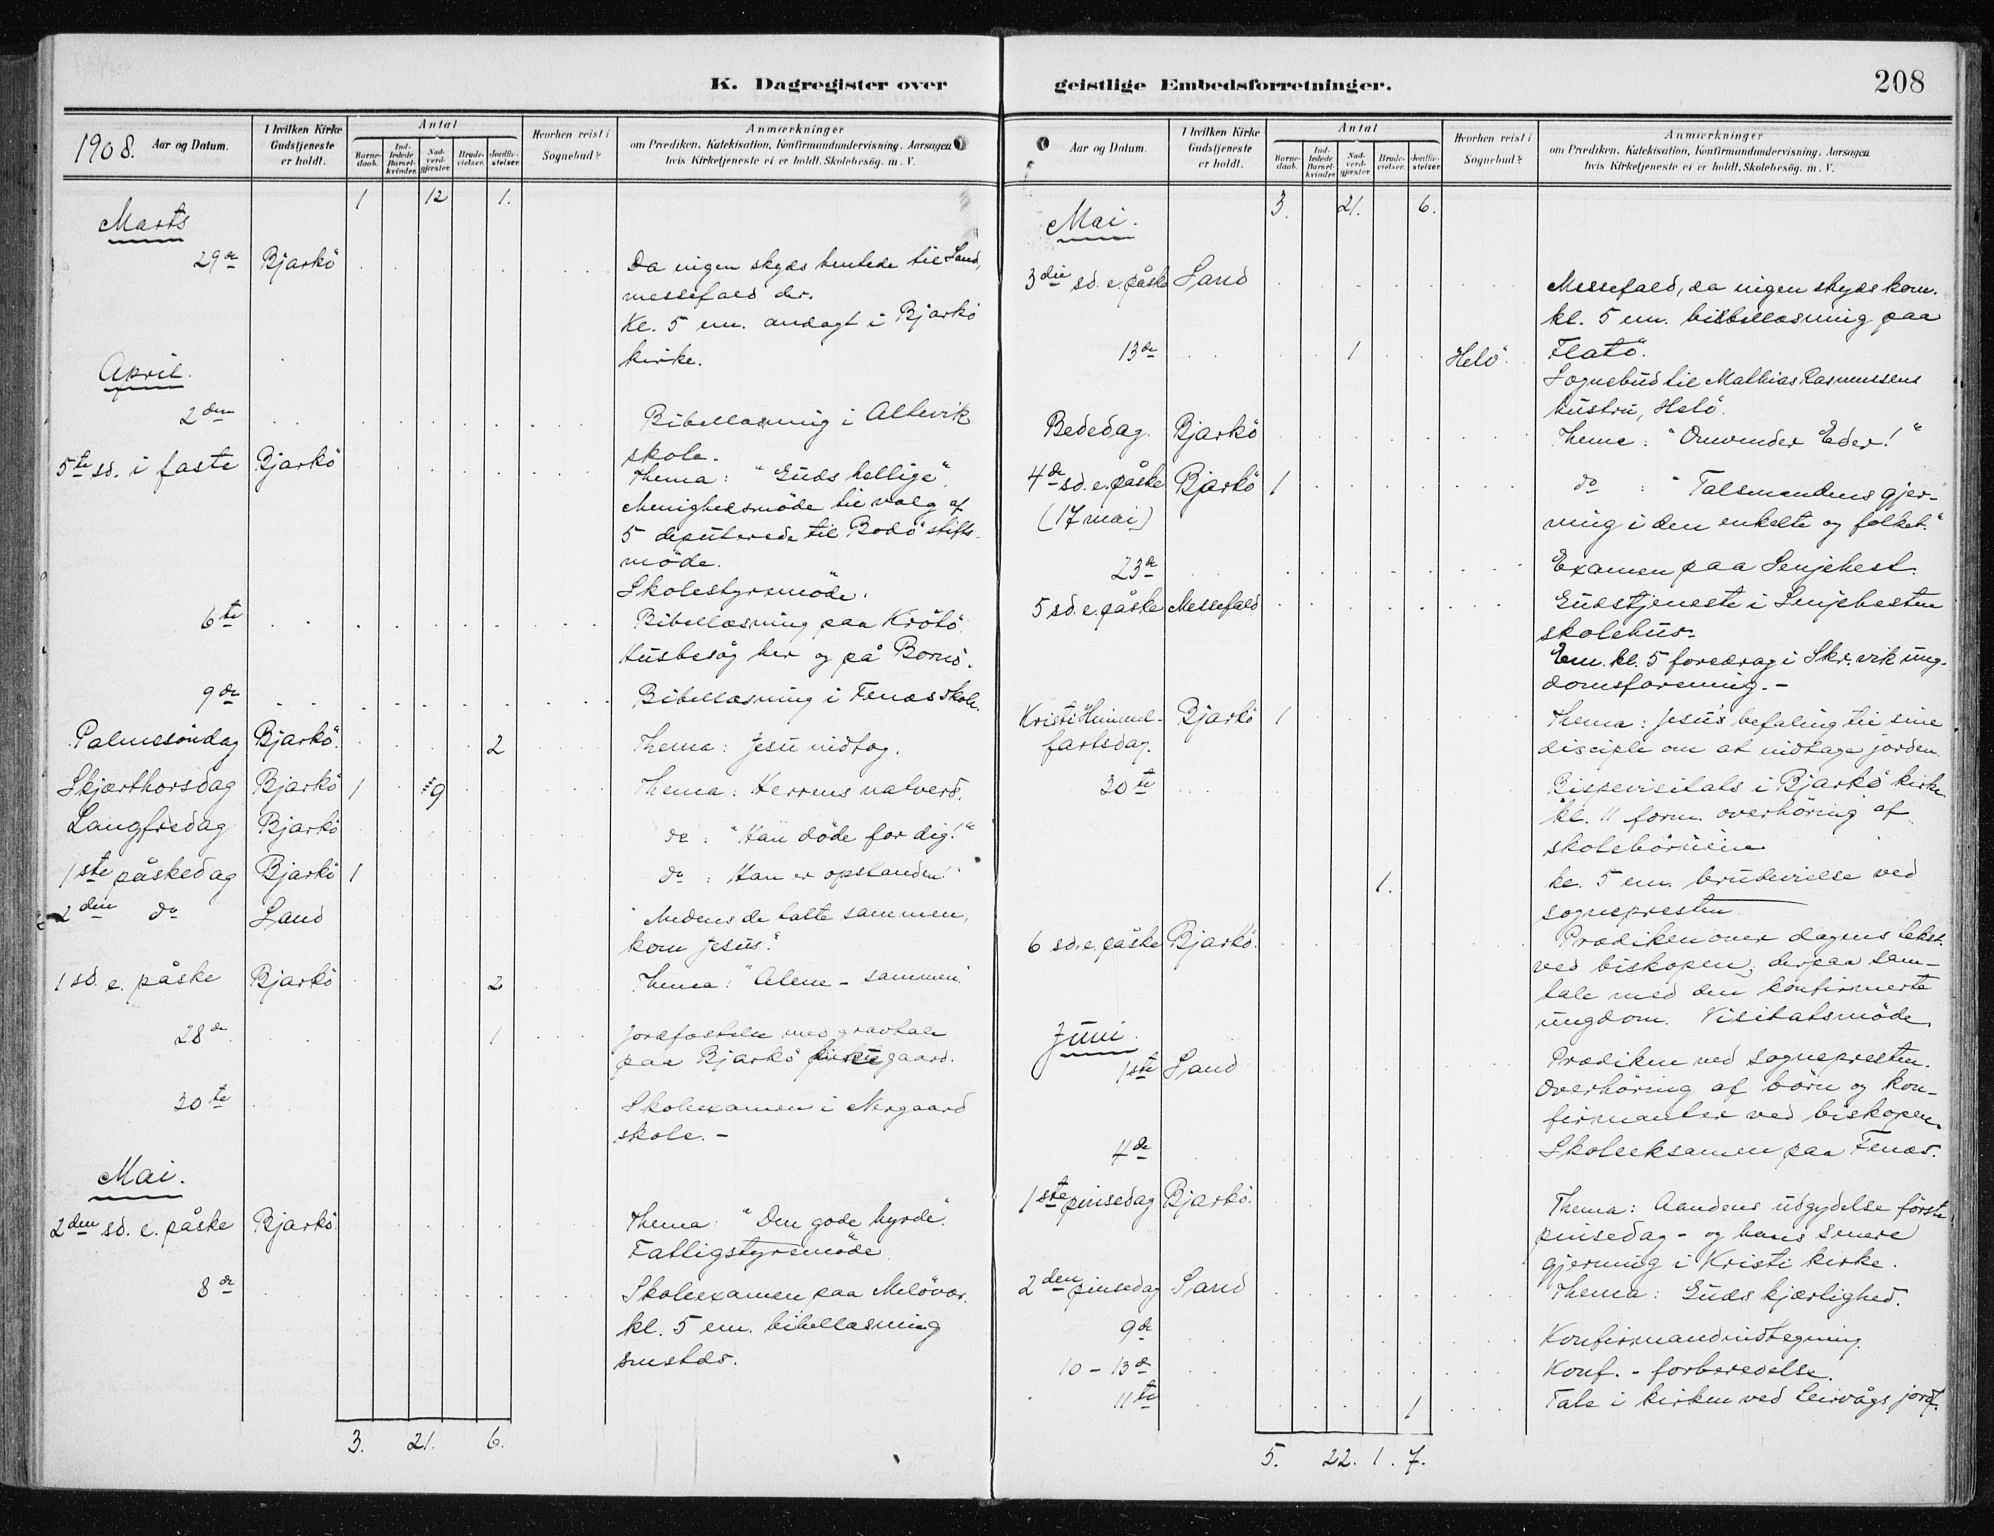 K. Dagregister over
1908.
Aar og Datum.
I hvilken Kirke Gudstjeneste er holdt.
Antal
Barne-daab.
Ind-ledede Barsel-kvinder.
Nad-verd-gjæster.
Brude-vielser.
Jordfæ-stelser.
Hvorhen reist i Sognebud?
Anmærkninger
om Prædiken, Katekisation, Konfirmandundervisning, Aarsagen
hvis Kirketjeneste ei er holdt, Skolebesøg, m. V.
1 12 1.
Marts
29de Bjarkö Da ingen skyds hentede til Sand,
messefald der.
Kl. 5 em. andagt i Bjarkö
kirke.
April.
2den Bibellæsning i Altevik
skole.
5te sd. i faste Bjarkö Thema: "Guds hellige".
Menighedsmöde til valg af
5 deputerede til Bodö stifts-
möde.
Skolestyrsmöde.
6te Bibellæsning paa Krötö.
Husbesög her og på
9de Bibellæsning i Fenæs skole.
Palmesöndag Bjarkö. 2 Thema: Jesu indtog.
Skjærthorsdag Bjarkö 1 9 Thema: Herrens natverd.
Langfredag Bjarkö do : "Han döde for dig!"
1ste påskedag Bjarkö 1 do : Han er opstanden!"
2den do Sand "Medens de talte sammen,
kom Jesus."
1 sd. e. påske Bjarkö 2 Thema: "Alene - sammen."
28de 1 Jordfæstelse med gravtale
paa Bjarkö kirkegaard.
30te Skoleexamen i Nergaard
skole. -
Mai.
2den sd. e. påske Bjarkö. Thema: "Den gode hyrde".
Fattigstyremöde
8de Skoleexamen paa Melövær.
kl. 5 em. bibellæsning
smstds.
3. 21. 6.
geistlige Embedsforretninger.
208
Aar og Datum.
I hvilken Kirke Gudstjeneste er holdt.
Antal
Barne-daab.
Ind-ledede Barsel-kvinder.
Nad-verd-gjæster.
Brude-vielser.
Jordfæ-stelser.
Hvorhen reist i Sognebud?
Anmærkninger
om Prædiken, Katekisation, Konfirmandundervisning, Aarsagen
hvis Kirketjeneste ei er holdt, Skolebesøg, m. V.
3. 21. 6.
Mai.
3die sd. e. påske Sand Messefald, da ingen skyds kom.
kl. 5 em. bibellæsning paa
Flatö.
13de 1 Helö. Sognebud til Mathias Rasmussens
hustru, Helö.
Bededag. Bjarkö Thema: "Omvender Eder!"
4de sd. e. påske Bjarkö 1 do : "Talsmandens gjer-
(17 mai) ning i den enkelte og folket."
23de Examen paa Senjehest.
5 sd. e. påske Messefald Gudstjeneste i Senjehesten
skolehus.
Em. kl. 5 foredrag i Skr.vik ung-
domsforening. -
Kristi Himmel- Bjarkö 1 Thema: Jesus befaling til sine
fartsdag. disciple om at indtage jorden.
30te Bispevisitats i Bjarkö kirke
kl. 11 form. overhöring af
skolebörnene.
1. kl. 5 em. brudevielse ved
sognepresten
6 sd. e. påske Bjarkö. Prædiken over dagens tekst
ved biskopen, derpaa sam-
tale med den konfirmerte
ungdom. Visitatsmöde.
Juni.
1ste Sand Prædiken ved sognepresten.
Overhöring af börn og kon-
firmanter ved biskopen.
4de Skoleeksamen paa Fenæs.
1ste pinsedag Bjarkö. Thema: Aandens udgydelse förste
pinsedag - og hans senere
gjerning i Kristi kirke.
2den pinsedag Sand Thema: Guds kjærlighed.
9de Konfirmandindtegning.
10 - 13de Konf. - forberedelse.
11te 1 Tale i kirken ved Leirvågs jordf.
5. 22. 1. 7.